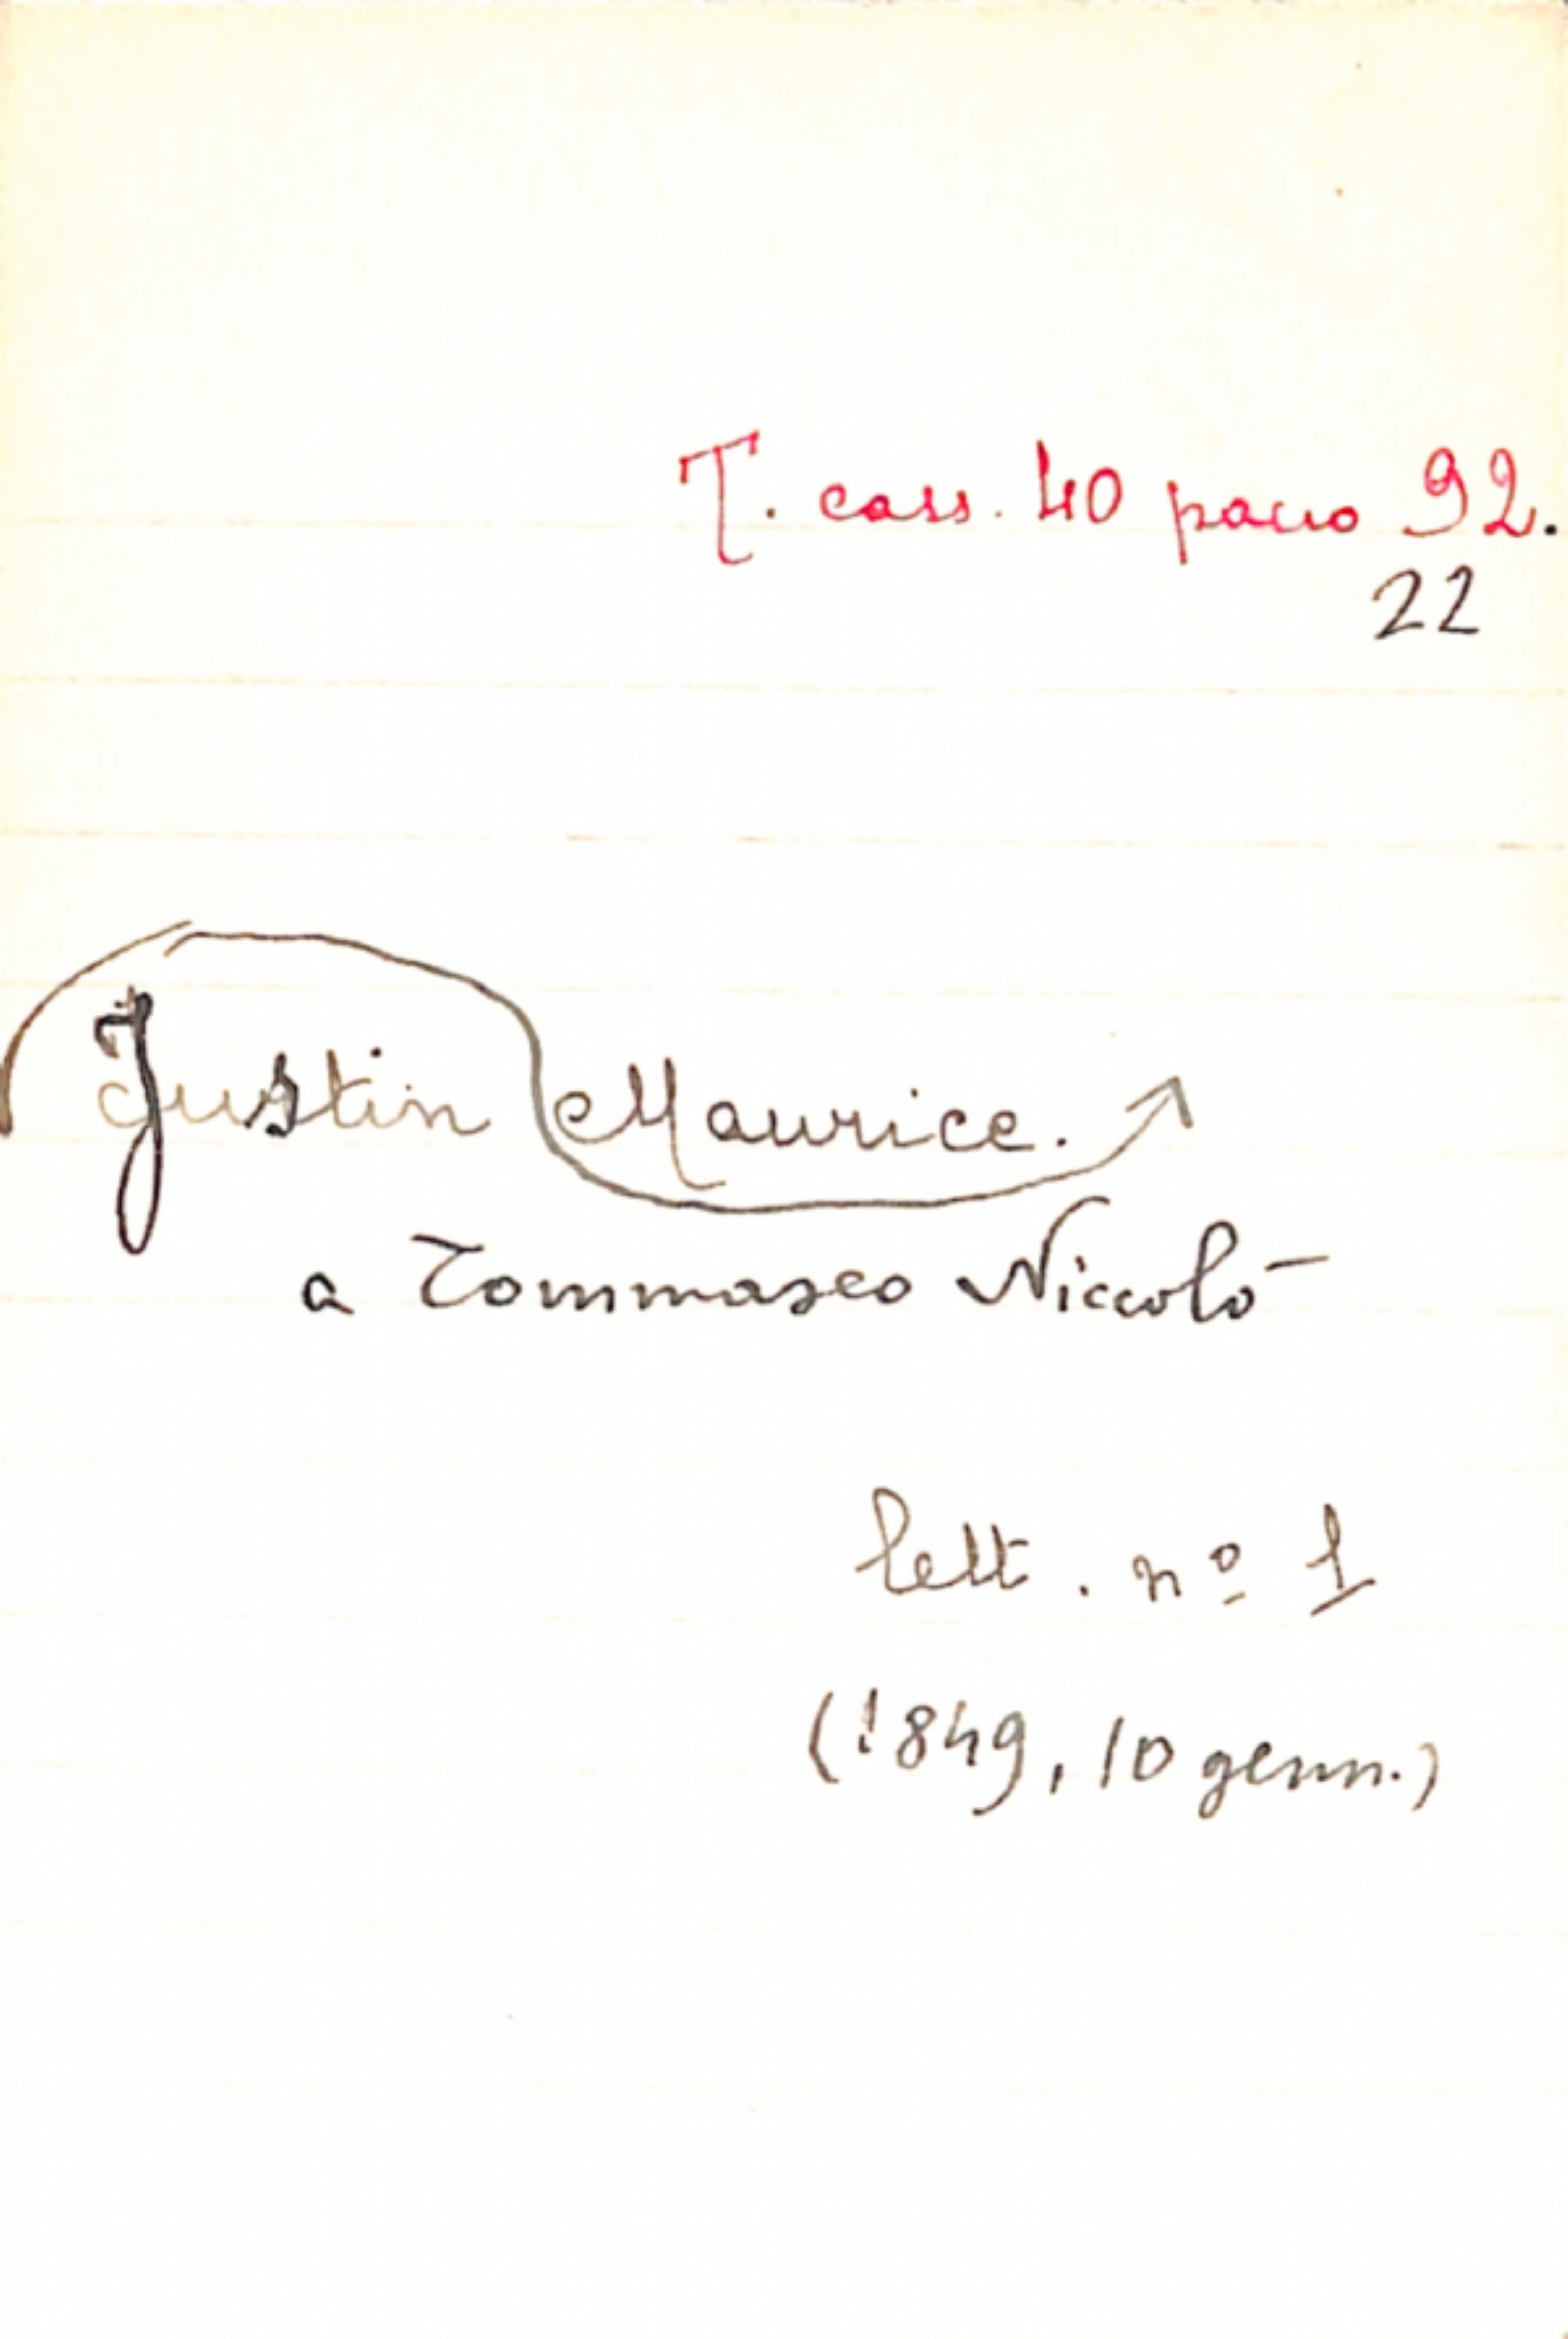 T. cass. 40 pacco 92.
22
Justin Maurice.
a Tommaseo Niccolò
lett. nº 1
(1849, 10 genn.)